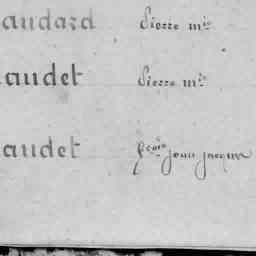 audard Pierre m.ie
audet Pierre m.ie
audet fçois Jean Jacques